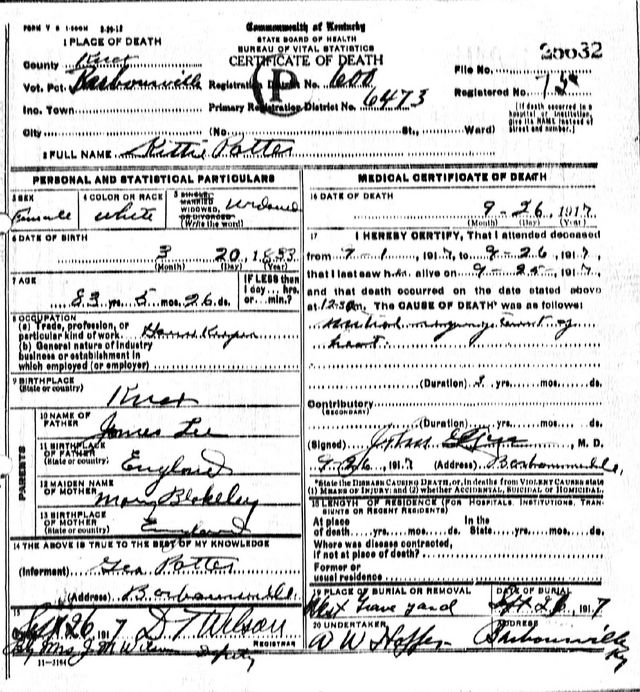 FORM V S 1-500M 8-29-12
Commonwealth of Kentucky
STATE BOARD OF HEALTH
BUREAU OF VITAL STATISTICS
CERTIFICATE OF DEATH
1 PLACE OF DEATH
County Knox
Vot. Pct. Barbourville Registration District No. 600
Inc. Town Primary Registration District No. 6473
City (No. St., Ward)
File No. 25032
Registered No.
[If death occurred in a hospital or institution, give its NAME instead of street and number.]
2 FULL NAME Kittie Potter
PERSONAL AND STATISTICAL PARTICULARS
3 SEX Female
4 COLOR OR RACE white
5 SINGLE, MARRIED, WIDOWED, OR DIVORCED (Write the word) Widowed
6 DATE OF BIRTH
3 20, 1833
(Month) (Day) (Year)
7 AGE
83 yrs. 5 mos. 26 ds.
IF LESS than 1 day... hrs. or... min.?
8 OCCUPATION
(a) Trade, profession, or particular kind of work House Keeper
(b) General nature of industry business or establishment in which employed (or employer)
9 BIRTHPLACE
(State or country) Knox
PARENTS
10 NAME OF FATHER James Lee
11 BIRTHPLACE OF FATHER (State or country) England
12 MAIDEN NAME OF MOTHER Mary Blakeley
13 BIRTHPLACE OF MOTHER (State or country) England
14 THE ABOVE IS TRUE TO THE BEST OF MY KNOWLEDGE
(Informant) Geo Potter
(Address) Barbourville
15
Sept 26, 1917 D T Wilson
REGISTRAR
By Mrs. J M Wilson Deputy
11-3184
MEDICAL CERTIFICATE OF DEATH
16 DATE OF DEATH
9-26, 1917
(Month) (Day) (Year)
17 I HEREBY CERTIFY, That I attended deceased
from 9-1, 1917, to 9-26, 1917,
that I last saw her alive on 9-25, 1917,
and that death occurred on the date stated above
at 12:30 m. The CAUSE OF DEATH* was as follows:
of
heart
(Duration) yrs. mos. ds.
Contributory
(SECONDARY)
(Duration) yrs. mos. ds.
(Signed) John M. D.
9-26, 1917 (Address) Barbourville,
*State the DISEASE CAUSING DEATH, or, in deaths from VIOLENT CAUSES state (1) MEANS OF INJURY; and (2) whether ACCIDENTAL, SUICIDAL or HOMICIDAL.
18 LENGTH OF RESIDENCE (FOR HOSPITALS, INSTITUTIONS, TRANSIENTS OR RECENT RESIDENTS)
At place of death yrs. mos. ds. In the State yrs. mos. ds.
Where was disease contracted, if not at place of death?
Former or usual residence
19 PLACE OF BURIAL OR REMOVAL
Grave yard
DATE OF BURIAL
Sept. 26, 1917
20 UNDERTAKER
W W
ADDRESS
Barbourville Ky